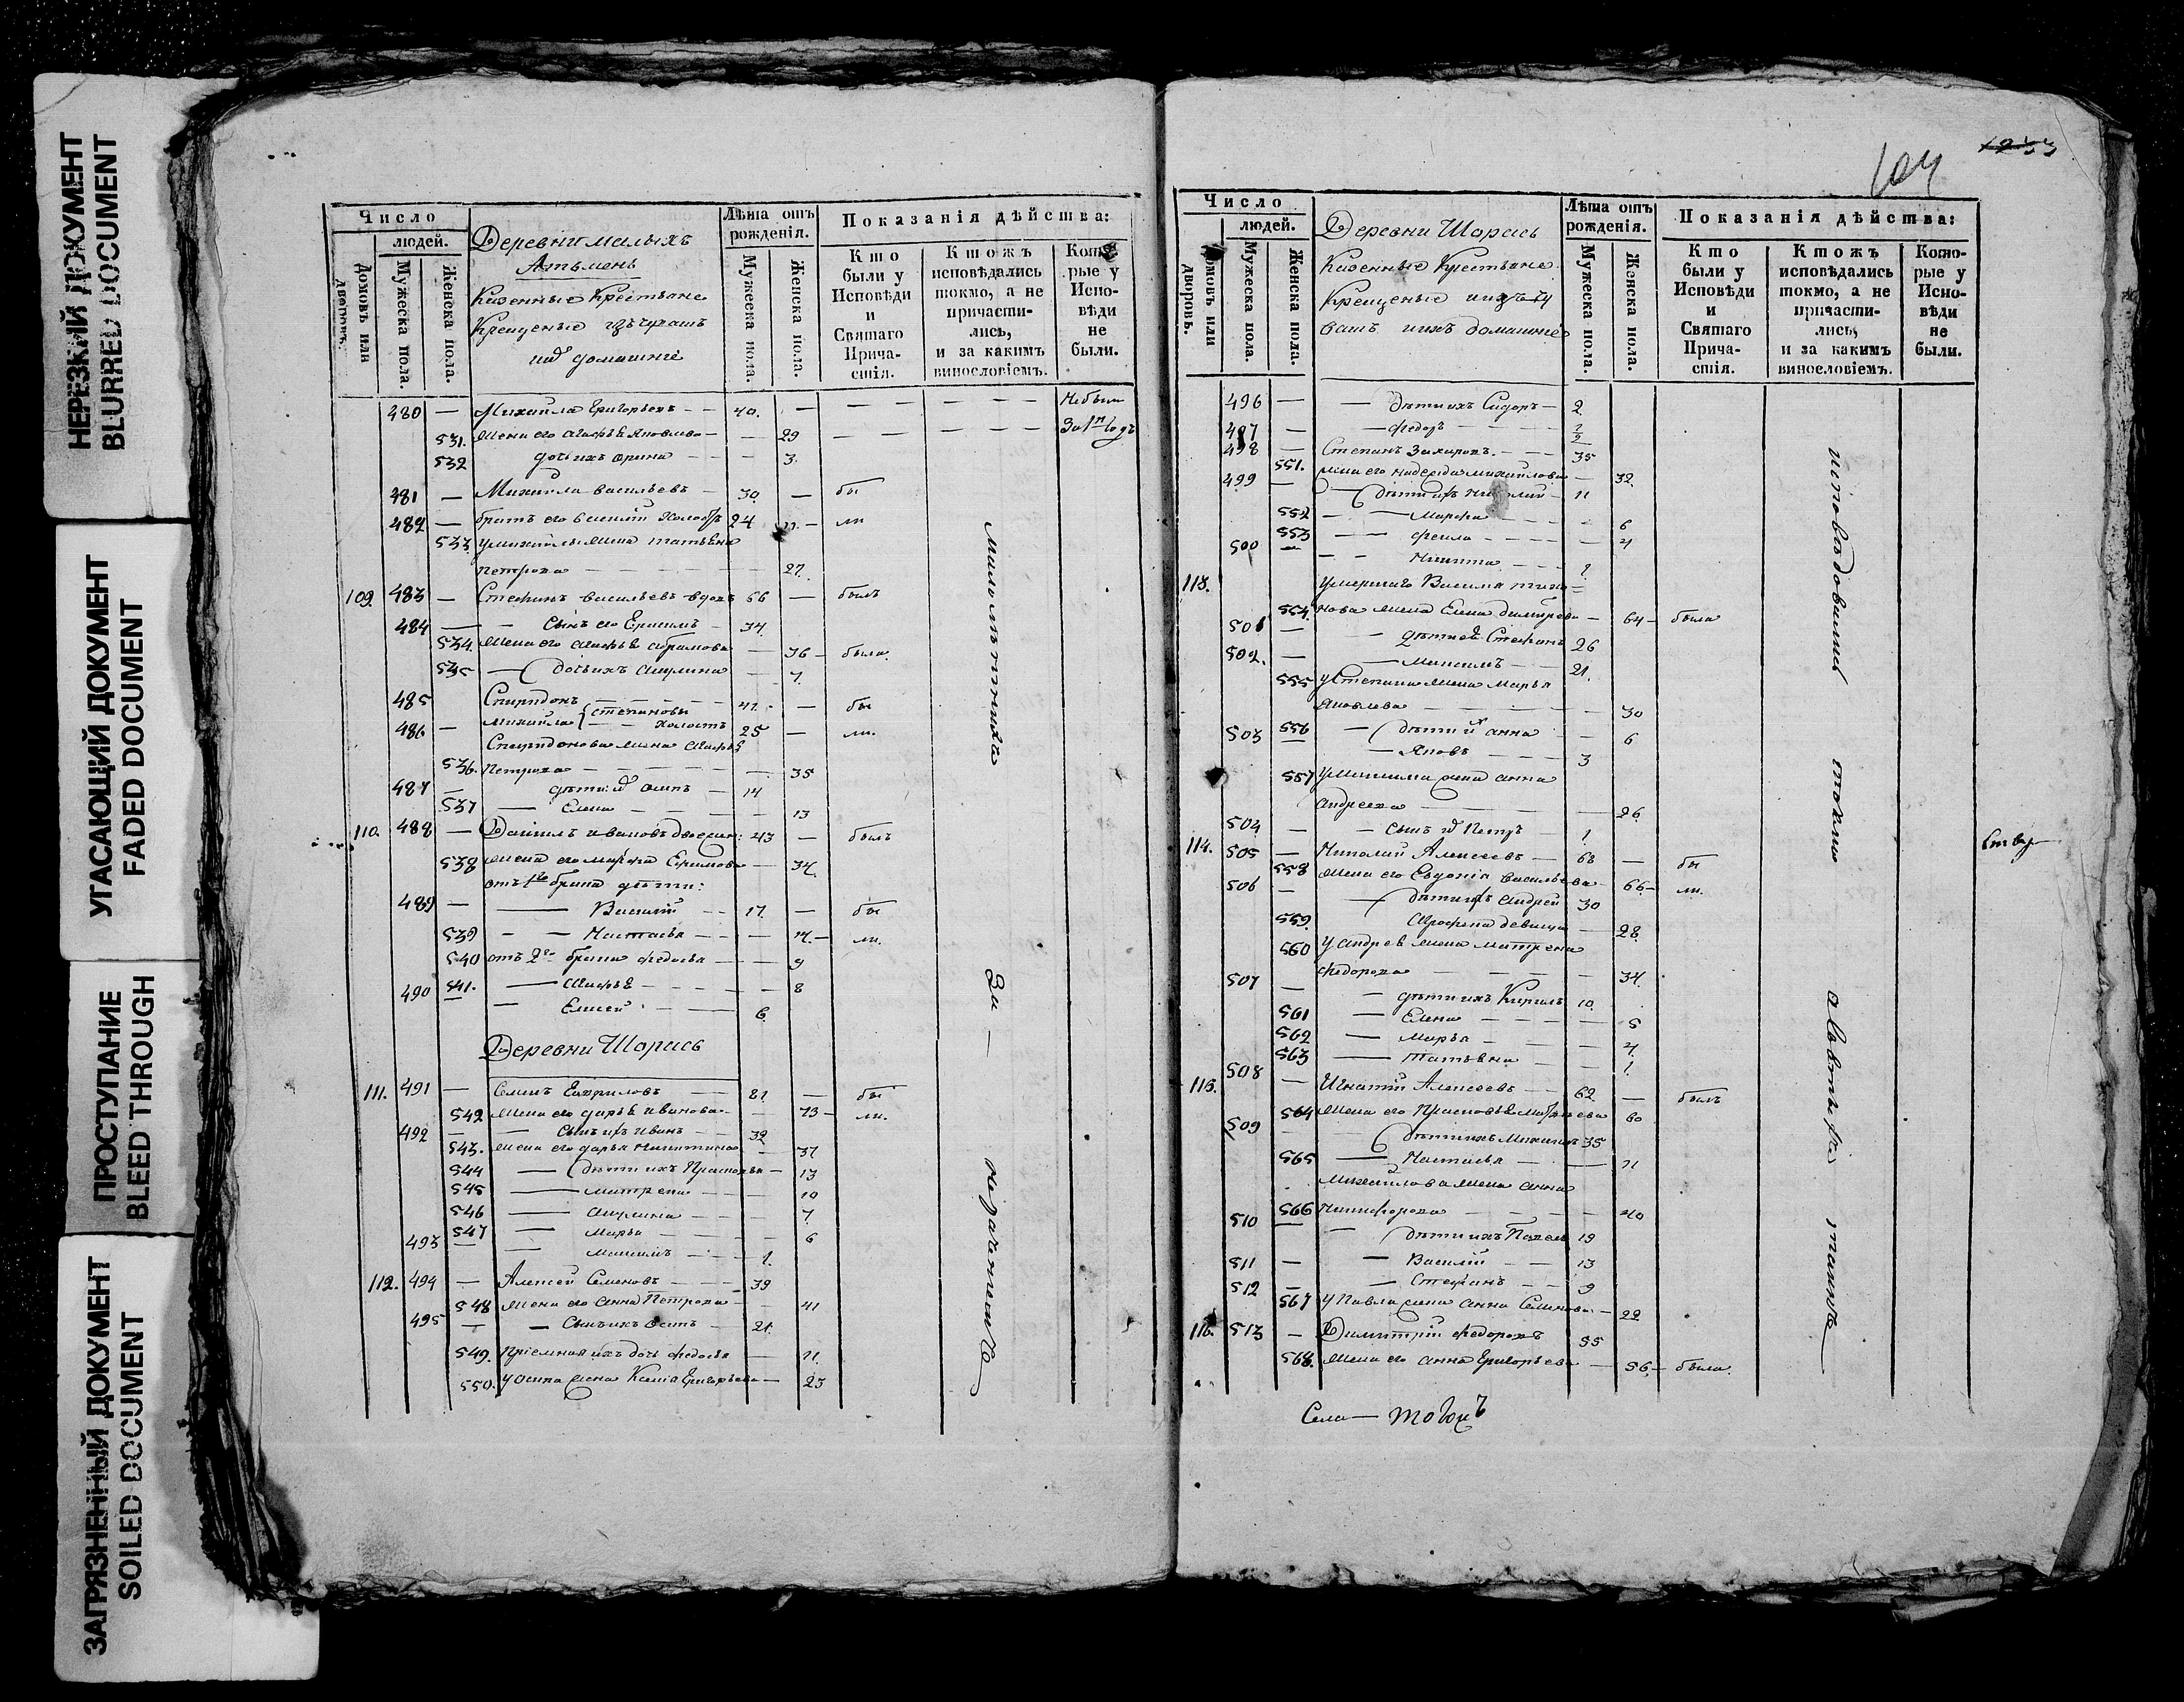 НЕРЕЗКИЙ ДОКУМЕНТ
BLURRED DOCUMENT
УГАСАЮЩИЙ ДОКУМЕНТ
FADED DOCUMENT
ПРОСТУПАНИЕ
BLEED THROUGH
ЗАГРЯЗНЕННЫЙ ДОКУМЕНТ
SOILED DOCUMENT
Число
людей.
Домовъ или дворовъ.
Мужеска пола.
Женска пола.
Деревни малыхъ
Атьмень
Казенные Крестьяне
Крещеные изъ чувашъ
домашніе
Лѣта отъ рожденія.
Мужеска пола.
Женска пола.
Показанія дѣйства:
Кто были у Исповѣди и Святаго Причастія.
Ктожъ исповѣдались токмо, а не причастились, и за какимъ винословіемъ.
Которые у Исповѣди не были.
480 — Михайла Григорьевъ — 40. — Небыли
531. Жена его Агафья Яковлева — 29
532 дочь ихъ Орина — 3.
481 — Михайла Васильевъ — 30. — бы
482 — братъ его Василій 24 ли
533. у Михайлы жена Татьяна
Петрова — 27.
109. 483 — Степанъ Васильевъ вдовъ 66 — былъ
484 — сынъ его Ефимъ — 34.
534. Жена его Агафья Абрамова — 36 — была.
535 — дочь ихъ Акулина — 7.
485 Спиридонъ — 41. — бы
486 — Михайла Степановы холостъ 25 — ли.
Спиридонова жена Агафья
536. Петрова — 35
487 — Осипъ — 14
537 — Елена — 13
110. 488 — Даніилъ Ивановъ 43 — былъ
538 Жена его Марфа Ефимова — 34.
отъ 1го брака дѣти:
489 — Василій — 17. — бы
539 — Настасья — 14. — ли.
540 отъ 2го брака Федосья — 9
541. — Агафья — 8
490 — Елисей — 6.
Деревни Шорись
111. 491 — Семенъ 81 — бы
542 Жена его Дарья Иванова — 73 — ли.
492 — сынъ ихъ Иванъ — 39
543. Жена его Дарья Никитина — 37
544 — дѣти ихъ Прасковья — 13
545 — Матрена — 10
546 — Акулина — 7.
547 — Марья — 6
493 — Максимъ — 1.
112. 494 — Алексей Семеновъ — 39
548 Жена его Анна Петрова — 41
495 — Сынъ ихъ Осипъ — 21.
549. Пріемная ихъ дочь Федосья — 11.
550. у Осипа жена Ксенія Григорьева — 23
малолѣтниха
За —
нераченіемъ
104
1233
Число
людей.
Домовъ или дворовъ.
Мужеска пола.
Женска пола.
Деревни Шорись
Казенные Крестьяне
Крещеные изъ Чу
вашъ и ихъ домашніе
Лѣта отъ рожденія.
Мужеска пола.
Женска пола.
Показанія дѣйства:
Кто были у Исповѣди и Святаго Причастія.
Ктожъ исповѣдались токмо, а не причастились, и за какимъ винословіемъ.
Которые у Исповѣди не были.
496 — дѣти ихъ Сидоръ — 2.
497 — Федоръ — 1/2
498 — Степанъ Захаровъ. — 35
551. жена его Надежда Михайлова — 32.
499 — дѣти ихъ Николай — 11
552 — Марфа — 6
553 — Фекла — 4
500 — Никита — 1.
113. Умершаго Василья Тихо=
554. нова жена Елена Дмитриева — 64 — была
501 — Степанъ 26
502. — Максимъ — 21.
555 у Степана жена Марья
Яковлева — 30
556 — дѣти ихъ Анна — 6
503 — Яковъ — 3
557 у Максима жена Анна
Андреева — 26.
504 — сынъ ихъ Петръ — 1.
114. 505 — Николай Алексеевъ — 68 — бы
558 Жена его Евдокія Васильева — 66 — ли.
506 — дѣти ихъ Андрей 30
559. девица — 28.
560 у Андрея жена Матрена
Федорова — 34.
507 — дѣти ихъ Кирилъ 10.
561 — Елена — 5
562 — Марья — 4.
563 — Татьяна — 1.
115. 508 — Игнатій Алексеевъ — 62 — былъ
564 Жена его Прасковья 60
509 дѣти ихъ Михаилъ 35
565 — Настасья — 11
Михайлова жена Анна
566 Никифорова — 40
510 — дѣти ихъ Павелъ 19
511 — Василій — 13
512 — Степанъ — 9
567 у Павла жена Анна Семенова — 22
116. 513 — Димитрій Федоровъ 55
568. Жена его Анна Григорьева — 56 — была.
исповѣдовались
токмо
Села —